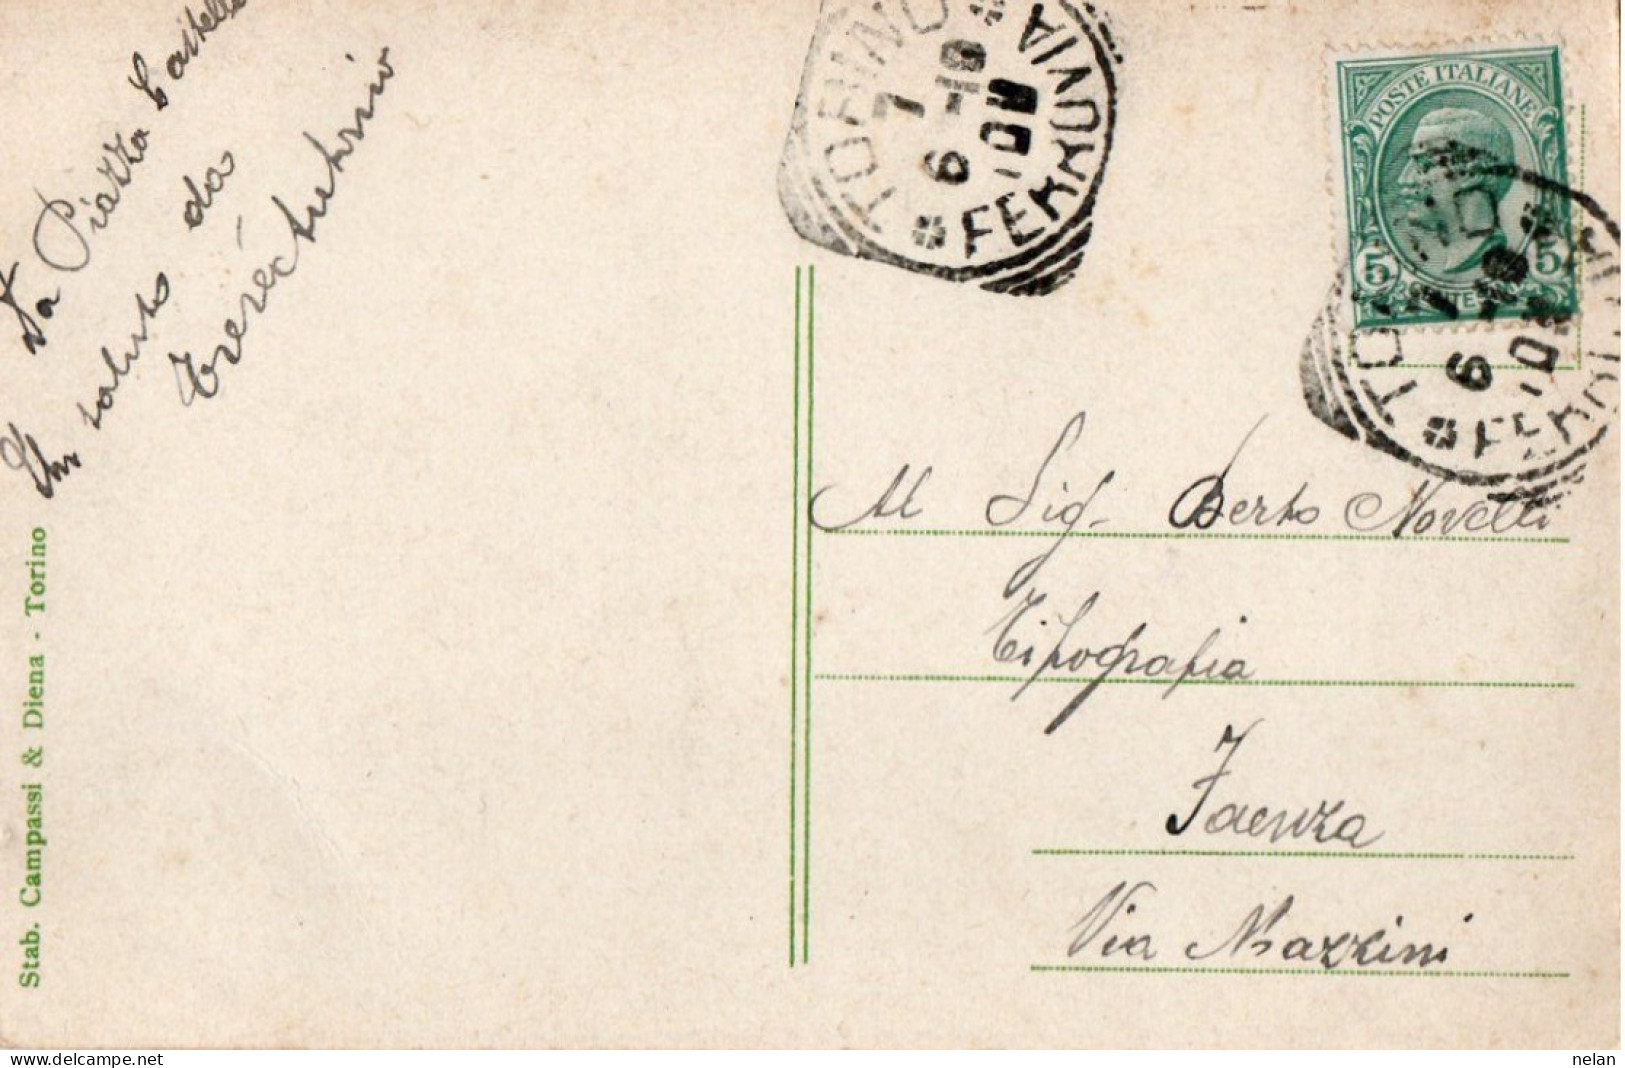 Da Piazza Castello
Un saluto da
Stab. Campassi & Diena - Torino
TORINO
FERROVIA
7-10
6
10M
POSTE ITALIANE
5 5
TORINO
FERROVIA
6
10M
Al Sig. Berto Novelli
Tipografia
Faenza
Via Mazzini
www.delcampe.net
nelan